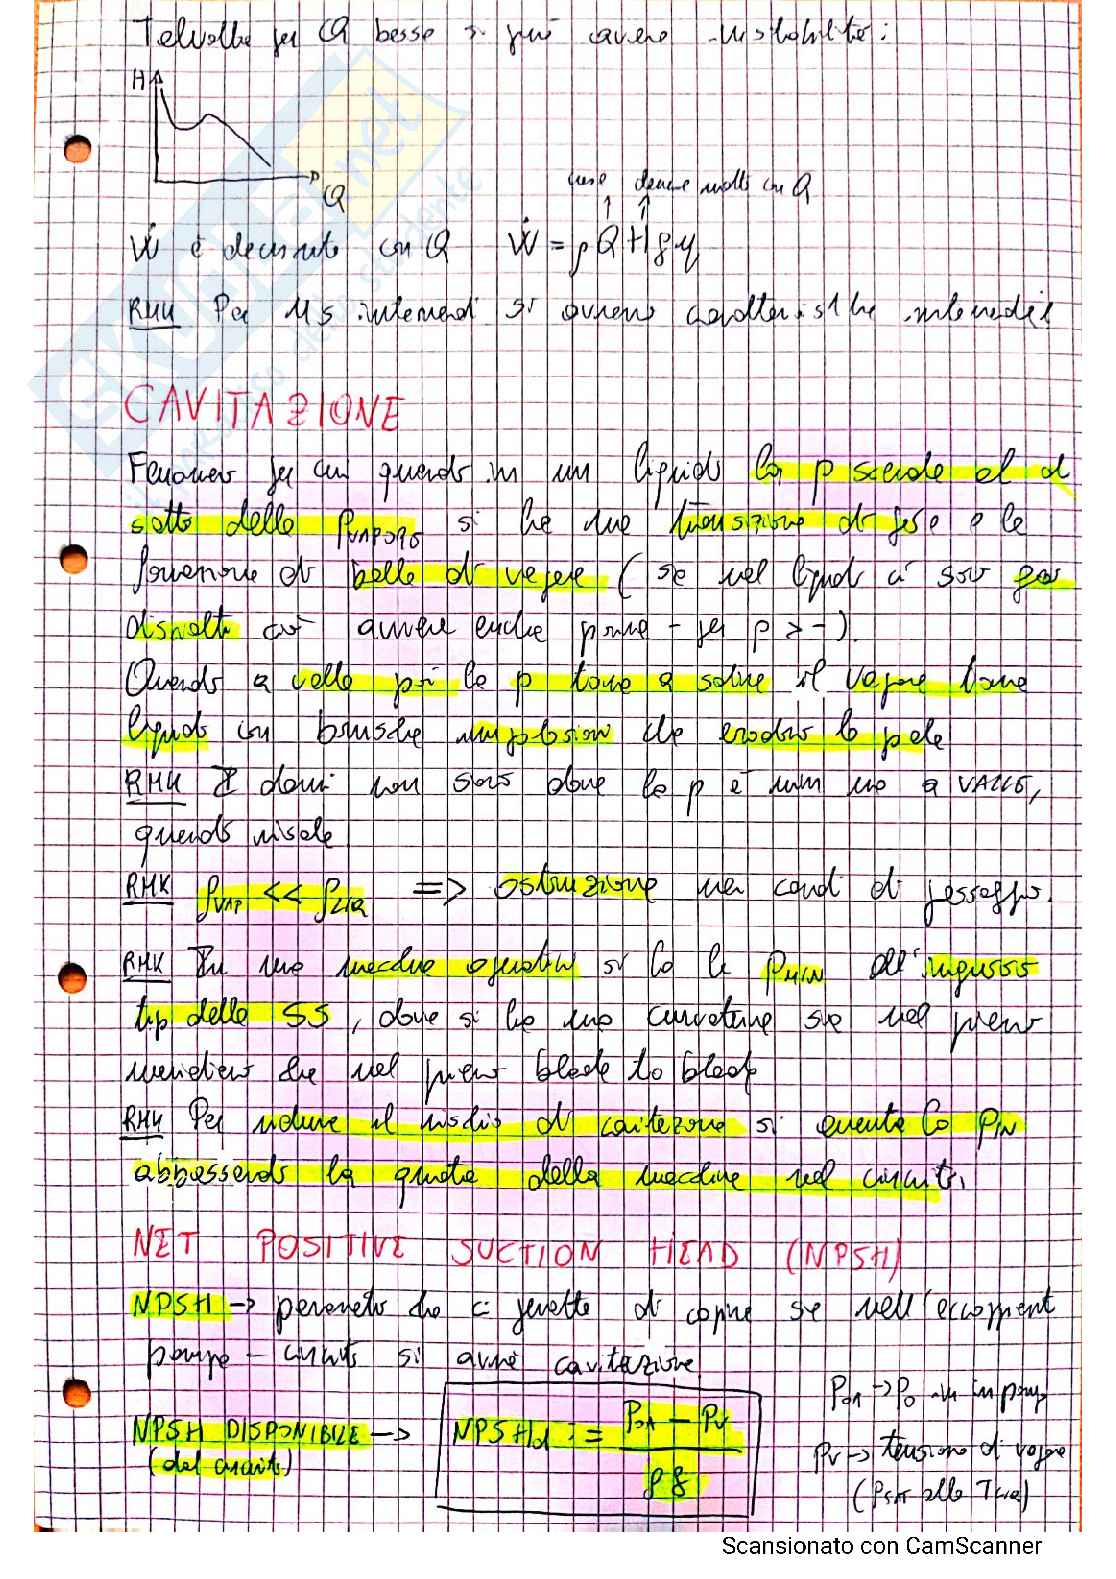 Talvolta per Q basse si può avere instabilità:
H
Q
cresce decresce molto con Q
Ẇ è decresciuto con Q Ẇ = ρQHgη
RMK Per ns intermedi si avranno caratteristiche intermedie
CAVITAZIONE
Fenomeno per cui quando in un liquido la p scende al di
sotto della PVAPORE si ha una transizione di fase e la
formazione di bolle di vapore (se nel liquido ci sono gas
disciolti ciò avviene anche prima - per p > -).
Quando a valle poi la p torna a salire il vapore torna
liquido con brusche implosioni che erodono la pala
RMK I danni non sono dove la p è min ma a VALLE,
quando risale
RMK ρVAP << ρLIQ => ostruzione nei condotti di passaggio.
RMK In una macchina operatrice si ha la PMIN all'ingresso
tip della SS, dove si ha una curvatura sia nel piano
meridiano che nel piano blade to blade
RMK Per ridurre il rischio di cavitazione si aumenta la PIN
abbassando la quota della macchina nel circuito.
NET POSITIVE SUCTION HEAD (NPSH)
NPSH -> parametro che ci permette di capire se nell'accoppiamento
pompa - circuito si avrà cavitazione
P0A -> P0 in in pompa
NPSH DISPONIBILE -> NPSHd := P0A - Pv / ρg
(del circuito)
Pv -> tensione di vapore
(PSAT alla TLIQ)
Scansionato con CamScanner